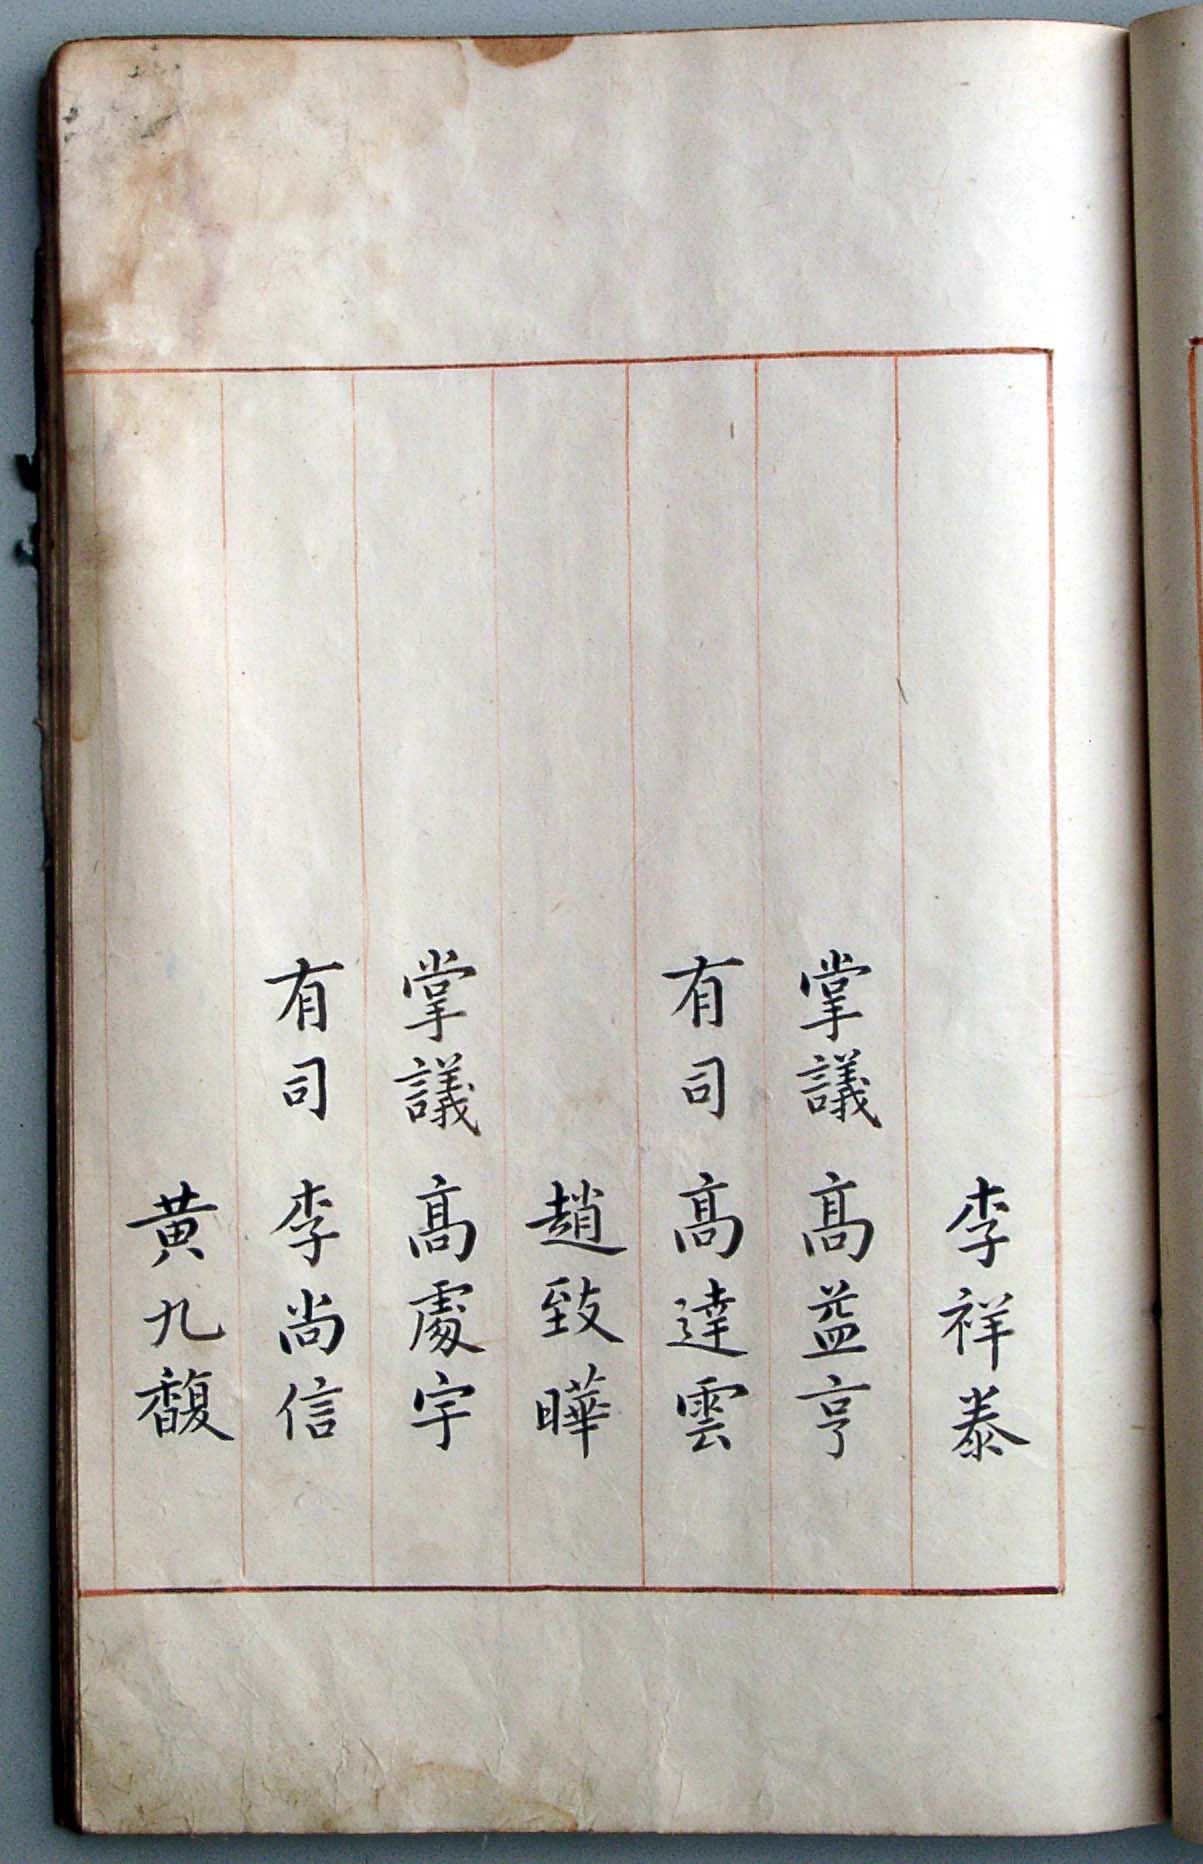 李祥泰
掌議 高益亨
有司 高達雲
趙致曄
掌議 高處宇
有司 李尚信
黃九馥